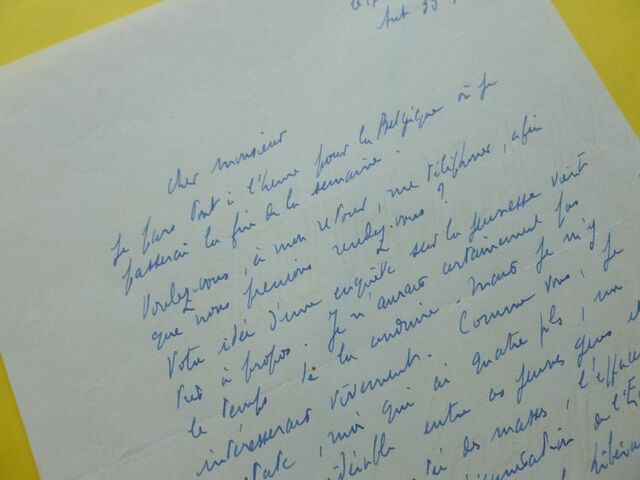 cher monsieur
Je pars tout à l'heure pour la Belgique où je
passerai la fin de la semaine.
Voulez-vous, à mon retour, me téléphoner, afin
que nous prenions rendez-vous ?
Votre idée d'une enquête sur la jeunesse vient
très à propos. Je n'aurais certainement pas
le temps de la conduire. Mais je m'y
intéresserais vivement. Comme vous, je
moi qui ai quatre fils, un
entre ces jeunes gens et
des masses, l'efface
de l'E